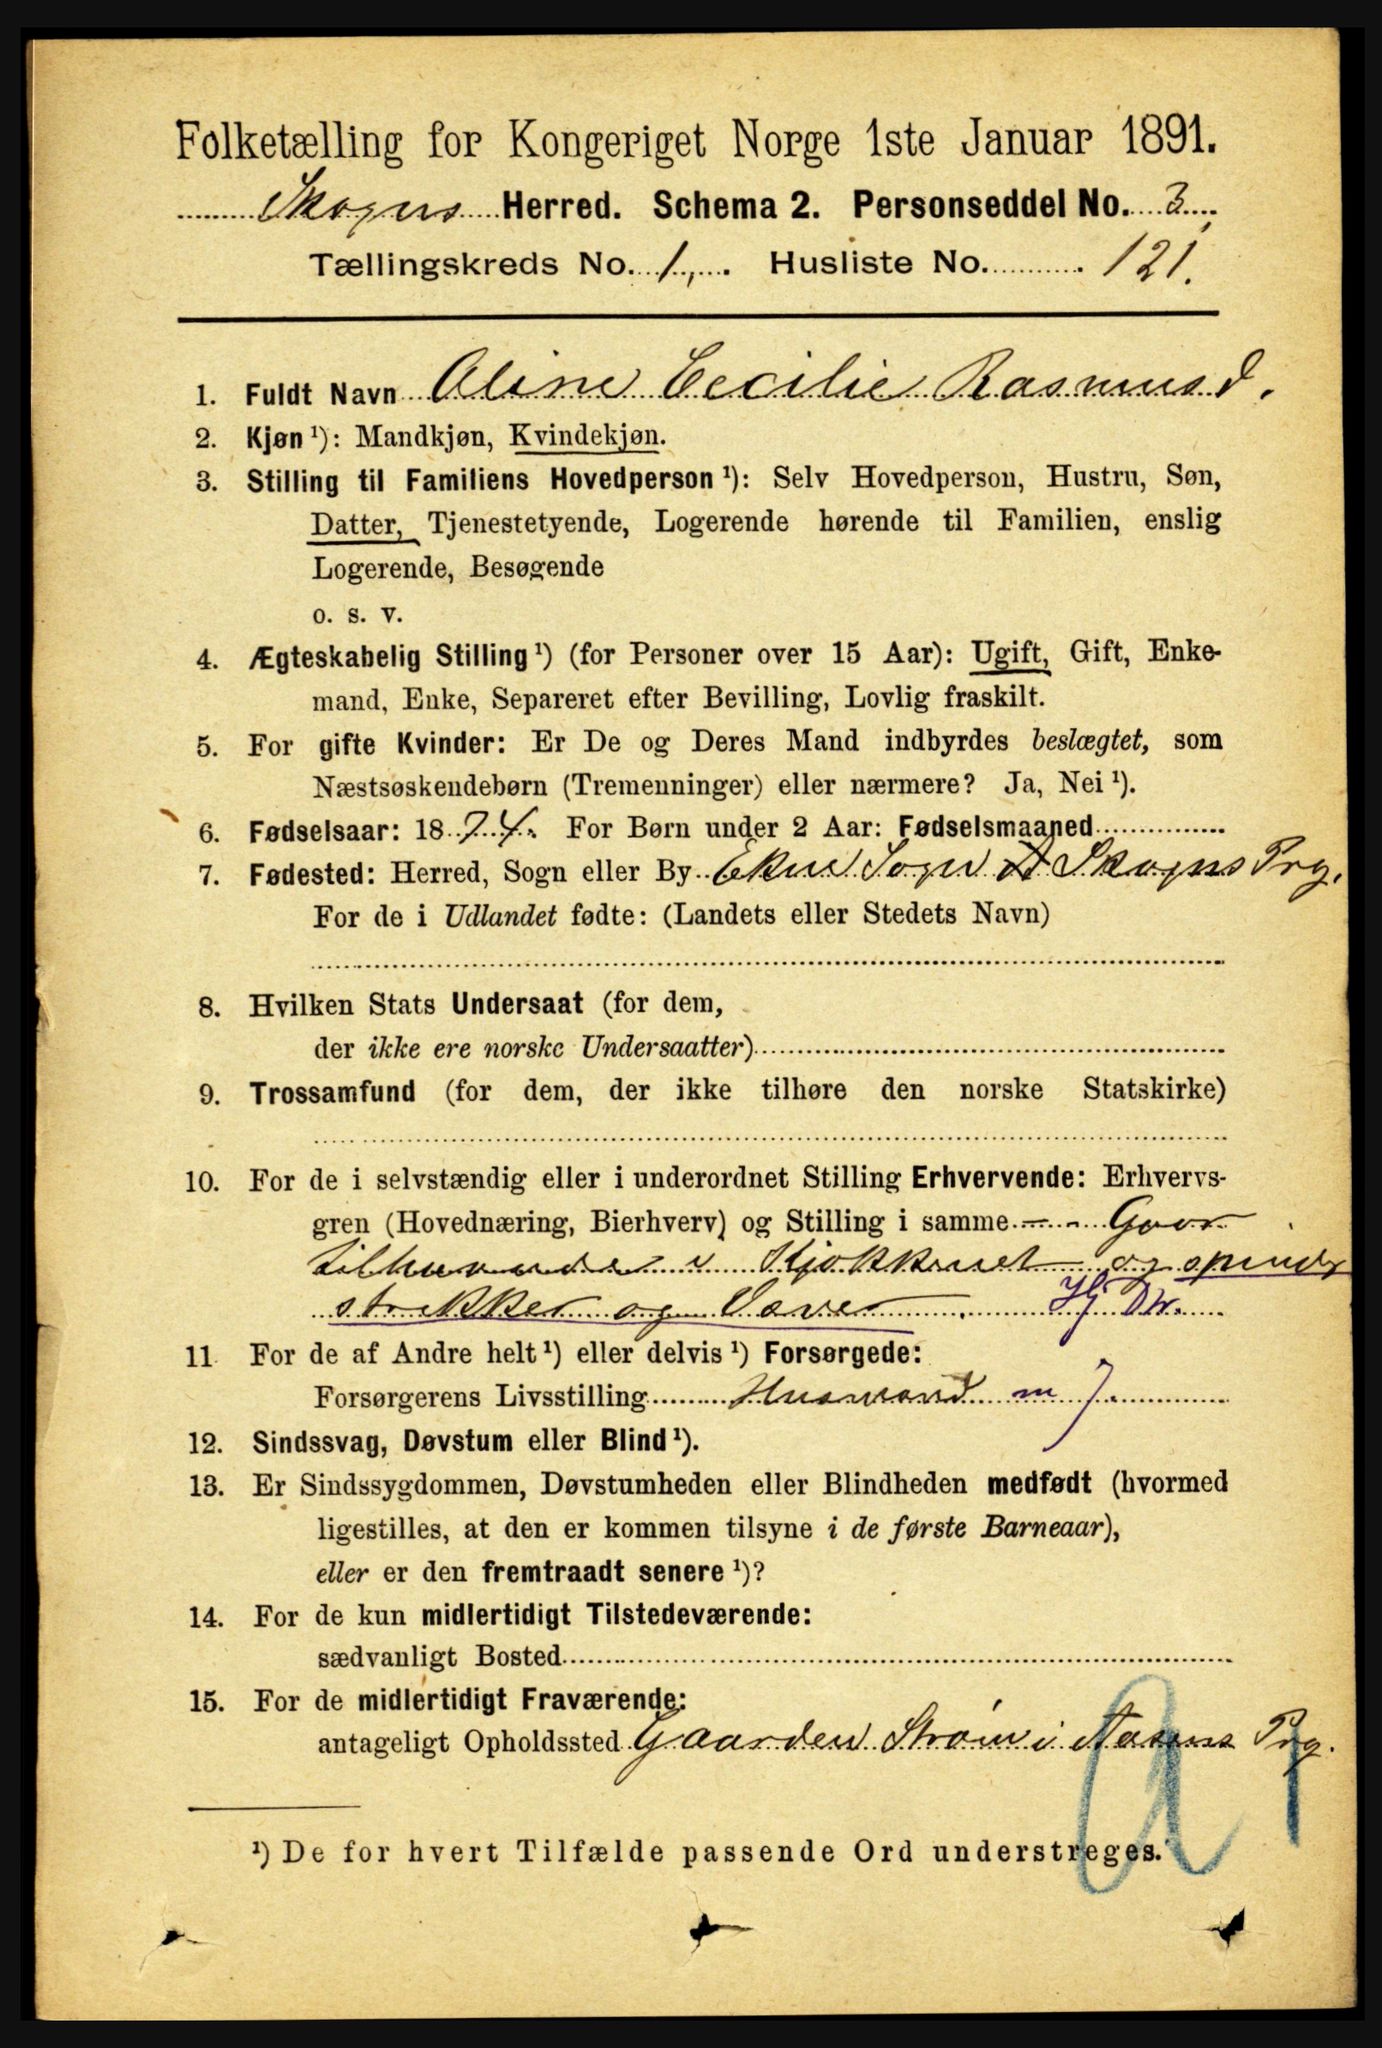 Folketælling for Kongeriget Norge 1ste Januar 1891.
Skogns Herred. Schema 2. Personseddel No. 3.
Tællingskreds No. 1. Husliste No. 121.
1. Fuldt Navn Oline Cecilie Rasmusd.
2. Kjøn ¹): Mandkjøn, Kvindekjøn.
3. Stilling til Familiens Hovedperson ¹): Selv Hovedperson, Hustru, Søn,
Datter, Tjenestetyende, Logerende hørende til Familien, enslig
Logerende, Besøgende
o. s. v.
4. Ægteskabelig Stilling ¹) (for Personer over 15 Aar): Ugift, Gift, Enke-
mand, Enke, Separeret efter Bevilling, Lovlig fraskilt.
5. For gifte Kvinder: Er De og Deres Mand indbyrdes beslægtet, som
Næstsøskendebørn (Tremenninger) eller nærmere? Ja, Nei ¹).
6. Fødselsaar: 1874. For Børn under 2 Aar: Fødselsmaaned
7. Fødested: Herred, Sogn eller By Ekne Sogn Skogns Prg.
For de i Udlandet fødte: (Landets eller Stedets Navn)
8. Hvilken Stats Undersaat (for dem,
der ikke ere norske Undersaatter)
9. Trossamfund (for dem, der ikke tilhøre den norske Statskirke)
10. For de i selvstændig eller i underordnet Stilling Erhvervende: Erhvervs-
gren (Hovednæring, Bierhverv) og Stilling i samme - - Gaar
tilhaande i Kjøkkenet og spinder
strikker og Væver. Hj Dtr.
11 For de af Andre helt ¹) eller delvis ¹) Forsørgede:
Forsørgerens Livsstilling Husmand m J.
12. Sindssvag, Døvstum eller Blind ¹).
13. Er Sindssygdommen, Døvstumheden eller Blindheden medfødt (hvormed
ligestilles, at den er kommen tilsyne i de første Barneaar),
eller er den fremtraadt senere ¹)?
14. For de kun midlertidigt Tilstedeværende:
sædvanligt Bosted
15. For de midlertidigt Fraværende:
antageligt Opholdssted Gaarden Strøm i Aasens Prg.
¹) De for hvert Tilfælde passende Ord understreges.